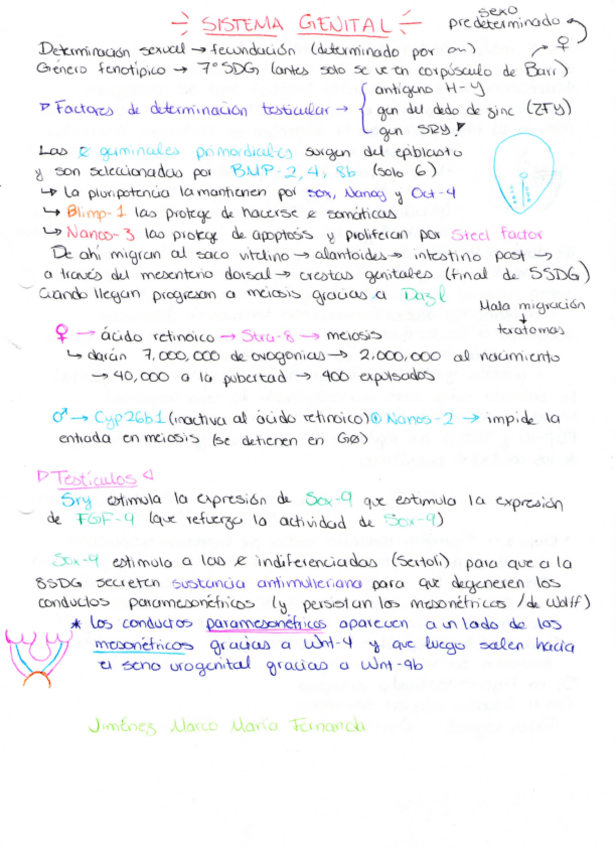 SISTEMA GENITAL
sexo predeterminado ♀
Determinación sexual → fecundación (determinado por
Género fenotípico → 7° SDG (antes solo se ve en corpúsculo de Barr)
▷ Factores de determinación testicular →
antígeno H-Y
gen del dedo de zinc (ZFY)
gen SRY!
Las ¢ germinales primordiales surgen del epiblasto
y son seleccionadas por BMP-2, 4, 8b (solo 6)
↳ La pluripotencia la mantienen por sox, Nanog y Oct-4
↳ Blimp-1 las protege de hacerse ¢ somáticas
↳ Nanos-3 las protege de apoptosis y proliferan por Steel factor
De ahí migran al saco vitelino → alantoides → intestino post →
a través del mesenterio dorsal → crestas genitales (final de 5SDG)
Cuando llegan progresan a meiosis gracias a Dazl
Mala migración
↓
teratomas
♀ → ácido retinoico → Stra-8 → meiosis
↳ darán 7,000,000 de ovogonias → 2,000,000 al nacimiento
→ 40,000 a la pubertad → 400 expulsados
♂ → Cyp26b1 (inactiva al ácido retinoico) ⊕ Nanos-2 → impide la
entrada en meiosis (se detienen en G0)
▷ Testículos ◁
Sry estimula la expresión de Sox-9 que estimula la expresión
de FGF-9 (que refuerza la actividad de Sox-9)
Sox-9 estimula a las ¢ indiferenciadas (Sertoli) para que a la
8SDG secreten sustancia antimulleriana para que degeneren los
conductos paramesonéfricos (y persistan los mesonéfricos / de Wolff)
* Los conductos paramesonéfricos aparecen a un lado de los
mesonéfricos gracias a Wnt-4 y que luego salen hacia
el seno urogenital gracias a Wnt-9b
Jiménez Marco María Fernanda